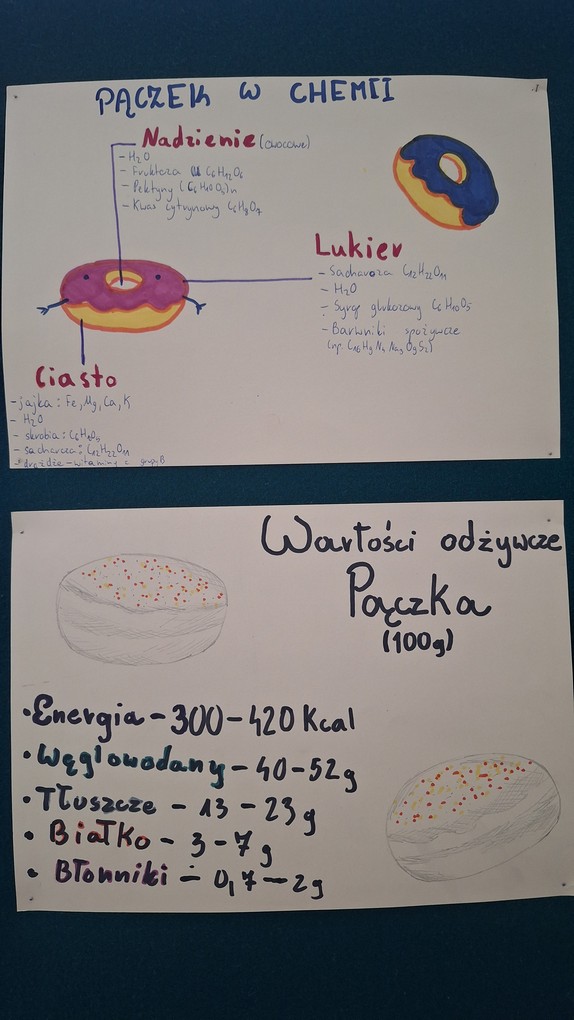 PĄCZEK W CHEMII
Nadzienie (owocowe)
- H₂O
- Fruktoza C₆H₁₂O₆
- Pektyny (C₆H₁₀O₇)n
- Kwas cytrynowy C₆H₈O₇
Lukier
- Sacharoza C₁₂H₂₂O₁₁
- H₂O
- Syrop glukozowy C₆H₁₀O₅
- Barwniki spożywcze
(np. C₁₆H₉N₄Na₃O₉S₂)
Ciasto
- jajka: Fe, Mg, Ca, K
- H₂O
- skrobia:
- sacharoza: C₁₂H₂₂O₁₁
drożdże - witaminy z grupy B
Wartości odżywcze
Pączka
(100g)
• Energia - 300 - 420 Kcal
• Węglowodany - 40 - 52g
• Tłuszcze - 13 - 23g
• Białko - 3 - 7g
• Błonniki - 0,7 - 2g